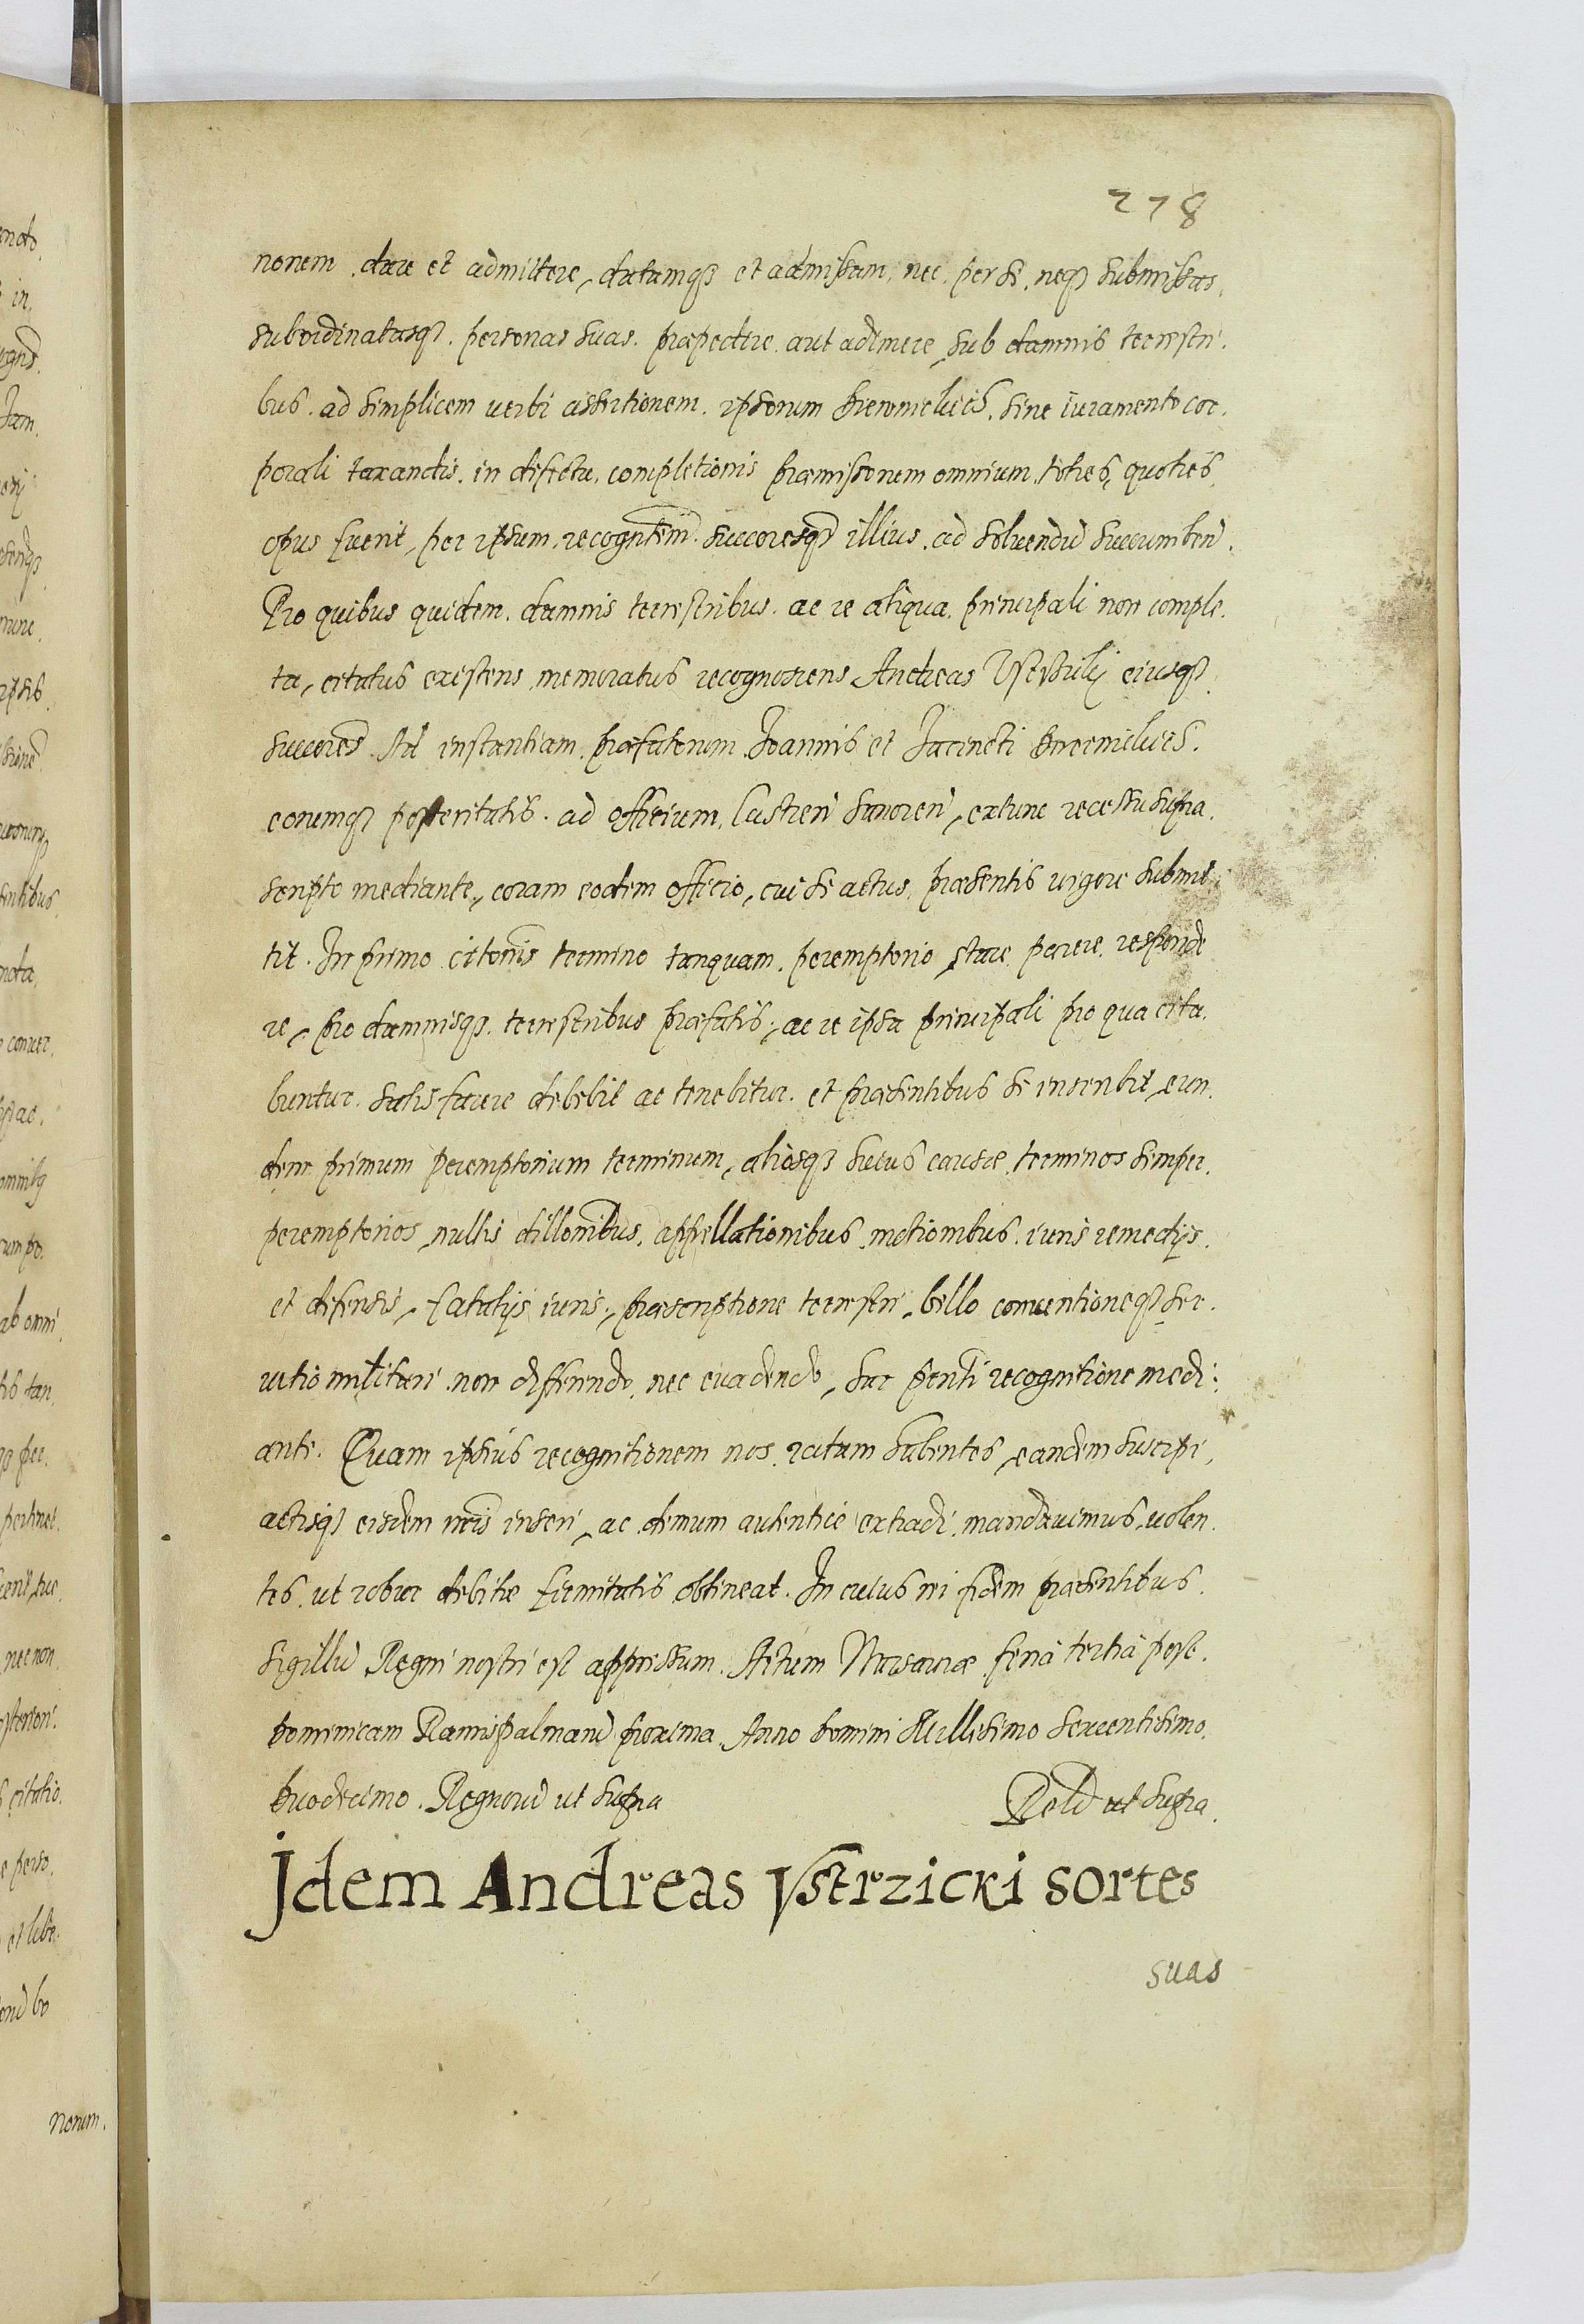 278
nonem dare et admittere, datamqȝ et admissam, nec per se, neqȝ submissas
subordinatasqȝ personas suas praepedire aut adimere, sub damnis terrestri
bus ad simplicem verbi assertionem ipsorum sine iuramento cor
porali taxandis in defectu completionis praemissorum omnium, toties, quoties
opus fuerit, per ipsum recogntem succoresqȝ illius ad solvendũ succumben̄
Pro quibus quidem damnis terrestribus ac re aliqua principali non comple
ta, citatus existens memoratus recognoscens Andreas eiusqȝ
succores Ad instantiam praefatorum Joannis et Jacincti
eorumqȝ posteritatis ad officium Castren̄ Sanocen̄, extunc recessu supra
scripto mediante, coram eodem officio, cui se actus praesentis vigore submit
tit. In primo citonis termino tanquam peremptorio stare parere responde
re, pro damnisqȝ terrestribus praefatis, ac re ipsa principali pro qua cita
buntur satisfacere debebit ac tenebitur et praesentibus se inscribit, eun
dem primum peremptorium terminum, aliosqȝ huius causae terminos semper
peremptorios, nullis dillonibus, appellationibus, motionibus, iuris remedijs
et defensis, fatalijs iuris, praescriptione terrestri, bello conventioneqȝ ser
vitio militari non differendo nec evadendo, sue pnti recognitione medi
ante. Quam ipsius recognitionem nos ratam habentes, eandem suscipi,
actisqȝ eisdem nris inseri, ac demum autentice extradi mandavimus, volen
tes ut robur debitae firmitatis obtineat. In cuius rei fidem praesentibus
Sigillũ Regni nostri est appressum. Actum Varsaviae feria tertia post
Dominicam Ramispalmarũ proxima Anno Domini Millesimo Sexcentesimo
Duodecimo. Regnorũ ut supra Reld ut supra
Jdem Andreas Vstrzicki sortes
suas